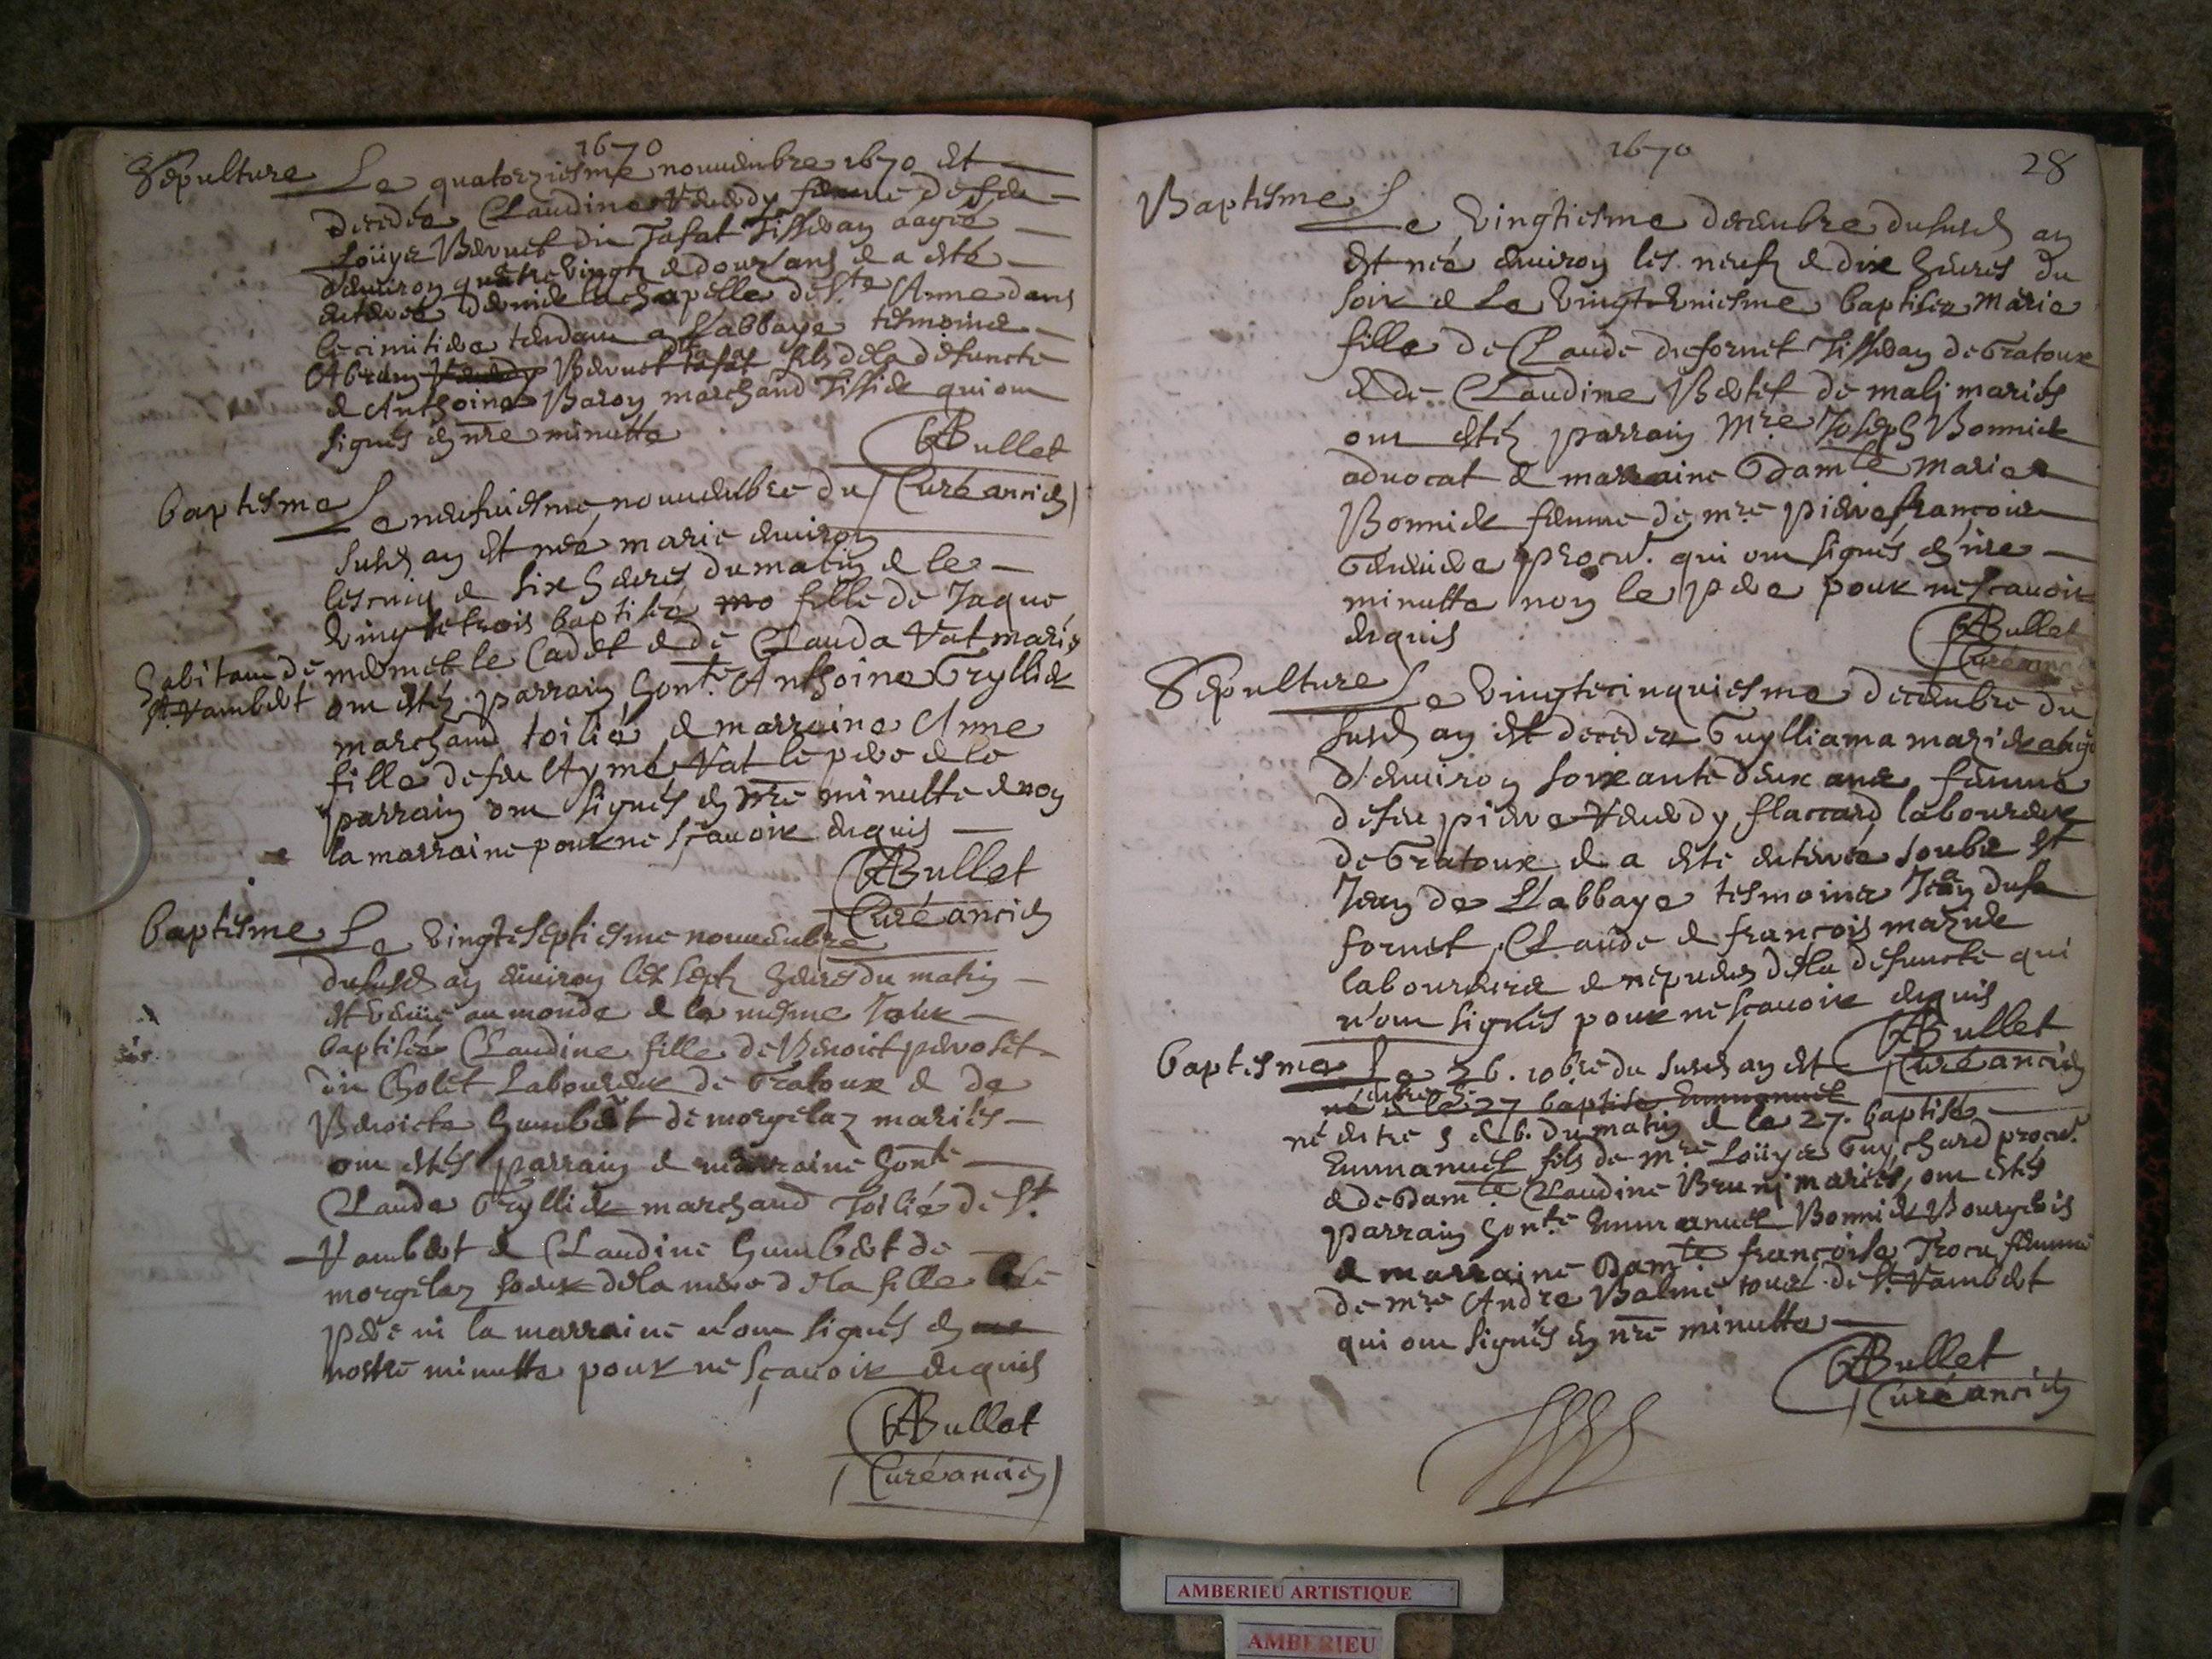 1670
Sépulture Le quatorziesme nouuembre 1670 est
decedée Claudine Venedy femme de feu
Loüys Bernet du Tafat Tisseran aagée
d'enuiron quatre vingtz & douz'ans & a esté
enterée derrier la chapelle de Ste Anne dans
le cimitiere tendant a L'abbaye tesmoins
Abram Bernet tafat fils de la defuncte
& Anthoine Baron marchand Tissier qui ont
signés en nre minutte
ABullet
Curé ancien
baptesme Le neufuiesme nouuembre du
susd an est née marie enuiron
les cinq & six heures du matin & le
vingtetrois baptisée mo fille de Jaque
mermet le Cadet & de Clauda Vat mariés
habitans de
St. Rambert ont estés parrain honte. Anthoine Gryllier
marchand toilié & marraine Anne
fille de feu Aymé Vat le pere & le
parrain ont signés en nre minutte & non
la marraine pour ne sçauoir enquis
ABullet
Curé ancien
baptesme Le vingteseptiesme nouuembre
du susd an enuiron les sept heures du matin
est venüe au monde & le mesme Jour
baptisée Claudine fille de Benoict peroset
du Cholet Laboureur de Gratoux & de
Benoicte humbert de morgelaz mariés
ont estés parrain & marraine honte
Claude Gryllier marchand Toilié de St.
Rambert & Claudine humbert de
morgelaz soeur de la mere de la fille le
pere ni la marraine n'ont signés en
nostre minutte pour ne sçauoir enquis
ABullet
Curé ancien
1670
28
Baptesme Le vingtiesme decembre du susd an
est née enuiron les neufz & dix heures du
soir & le vingtvniesme baptisée Marie
fille de Claude dufornet Tisseran de Gratoux
& de Claudine Bertet de malj mariés
ont estéz parrain Mre Joseph Bonnier
aduocat & marraine Damle Marie
Bonnier femme de mre pierre françois
procur. qui ont signés en nre
minutte non le pere pour ne sçauoir
enquis
ABullet
Curé anc
Sépulture Le vingtecinquiesme decembre du
susd an est decedée Guylliama mazuer
d'enuiron soixante deux ans femme
de feu pierre Venedy flaccard laboureur
de Gratoux & a esté enterrée soubz St
Jean de L'abbaye tesmoins Jean dufe
fornet, Claude & françois mazuer
laboureurs & nepueus de la defuncte qui
n'ont signés pour ne sçauoir enquis
ABullet
Curé ancien
baptesme Le 26. 10bre du susd an est
né entre 5 & le 27 baptisé Emmanuel
né entre 5 & 6. du matin & le 27. baptisé
Emmanuel fils de mre Loüys Guychard procur.
& de Damle Claudine Brunj mariés, ont estés
parrain honte Emmanuel Bonnier Bourgeois
& marraine Damle françoise Trocu femme
de mre André Balme de St. Rambert
qui ont signés en nre minutte
ABullet
Curé ancien
AMBERIEU ARTISTIQUE
AMBERIEU